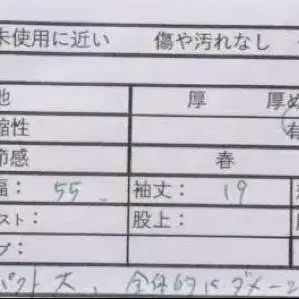 未使用に近い 傷や汚れなし
地 厚 厚め
縮性 有
節感 春
幅: 55 袖丈: 19
スト: 股上:
プ:
パクト大、全体的にダメージ